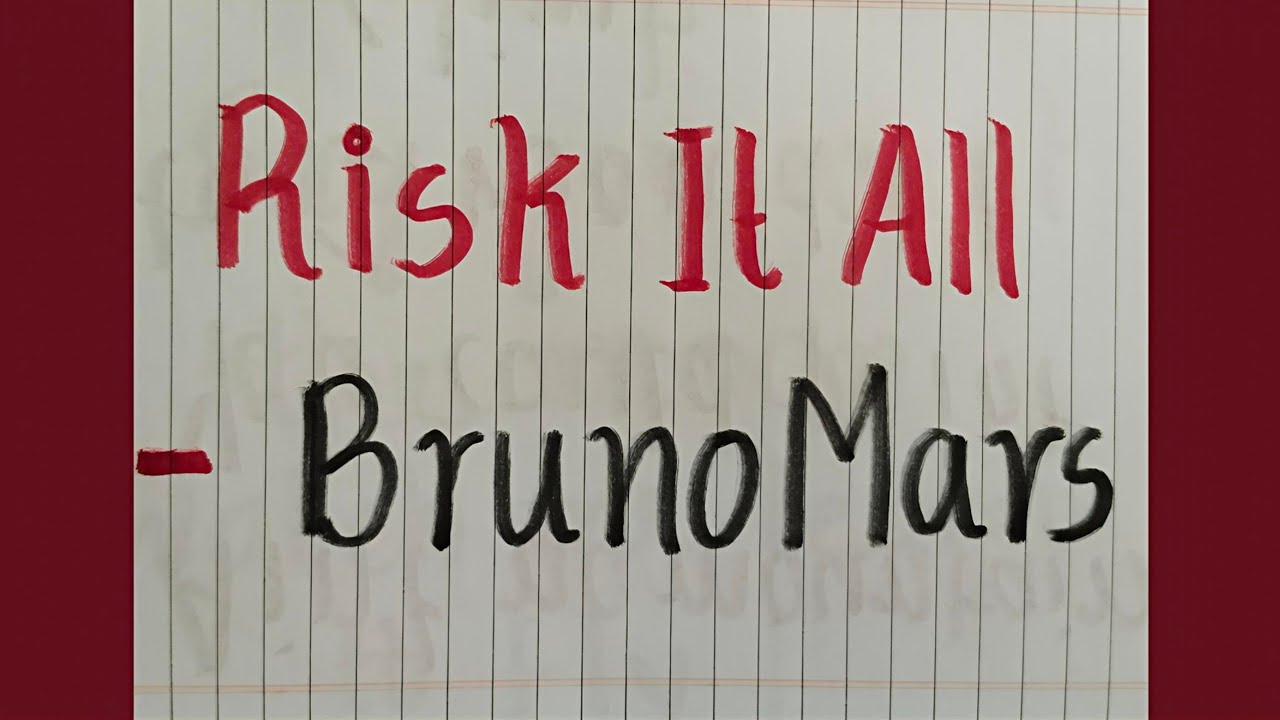 Risk It All
- Bruno Mars